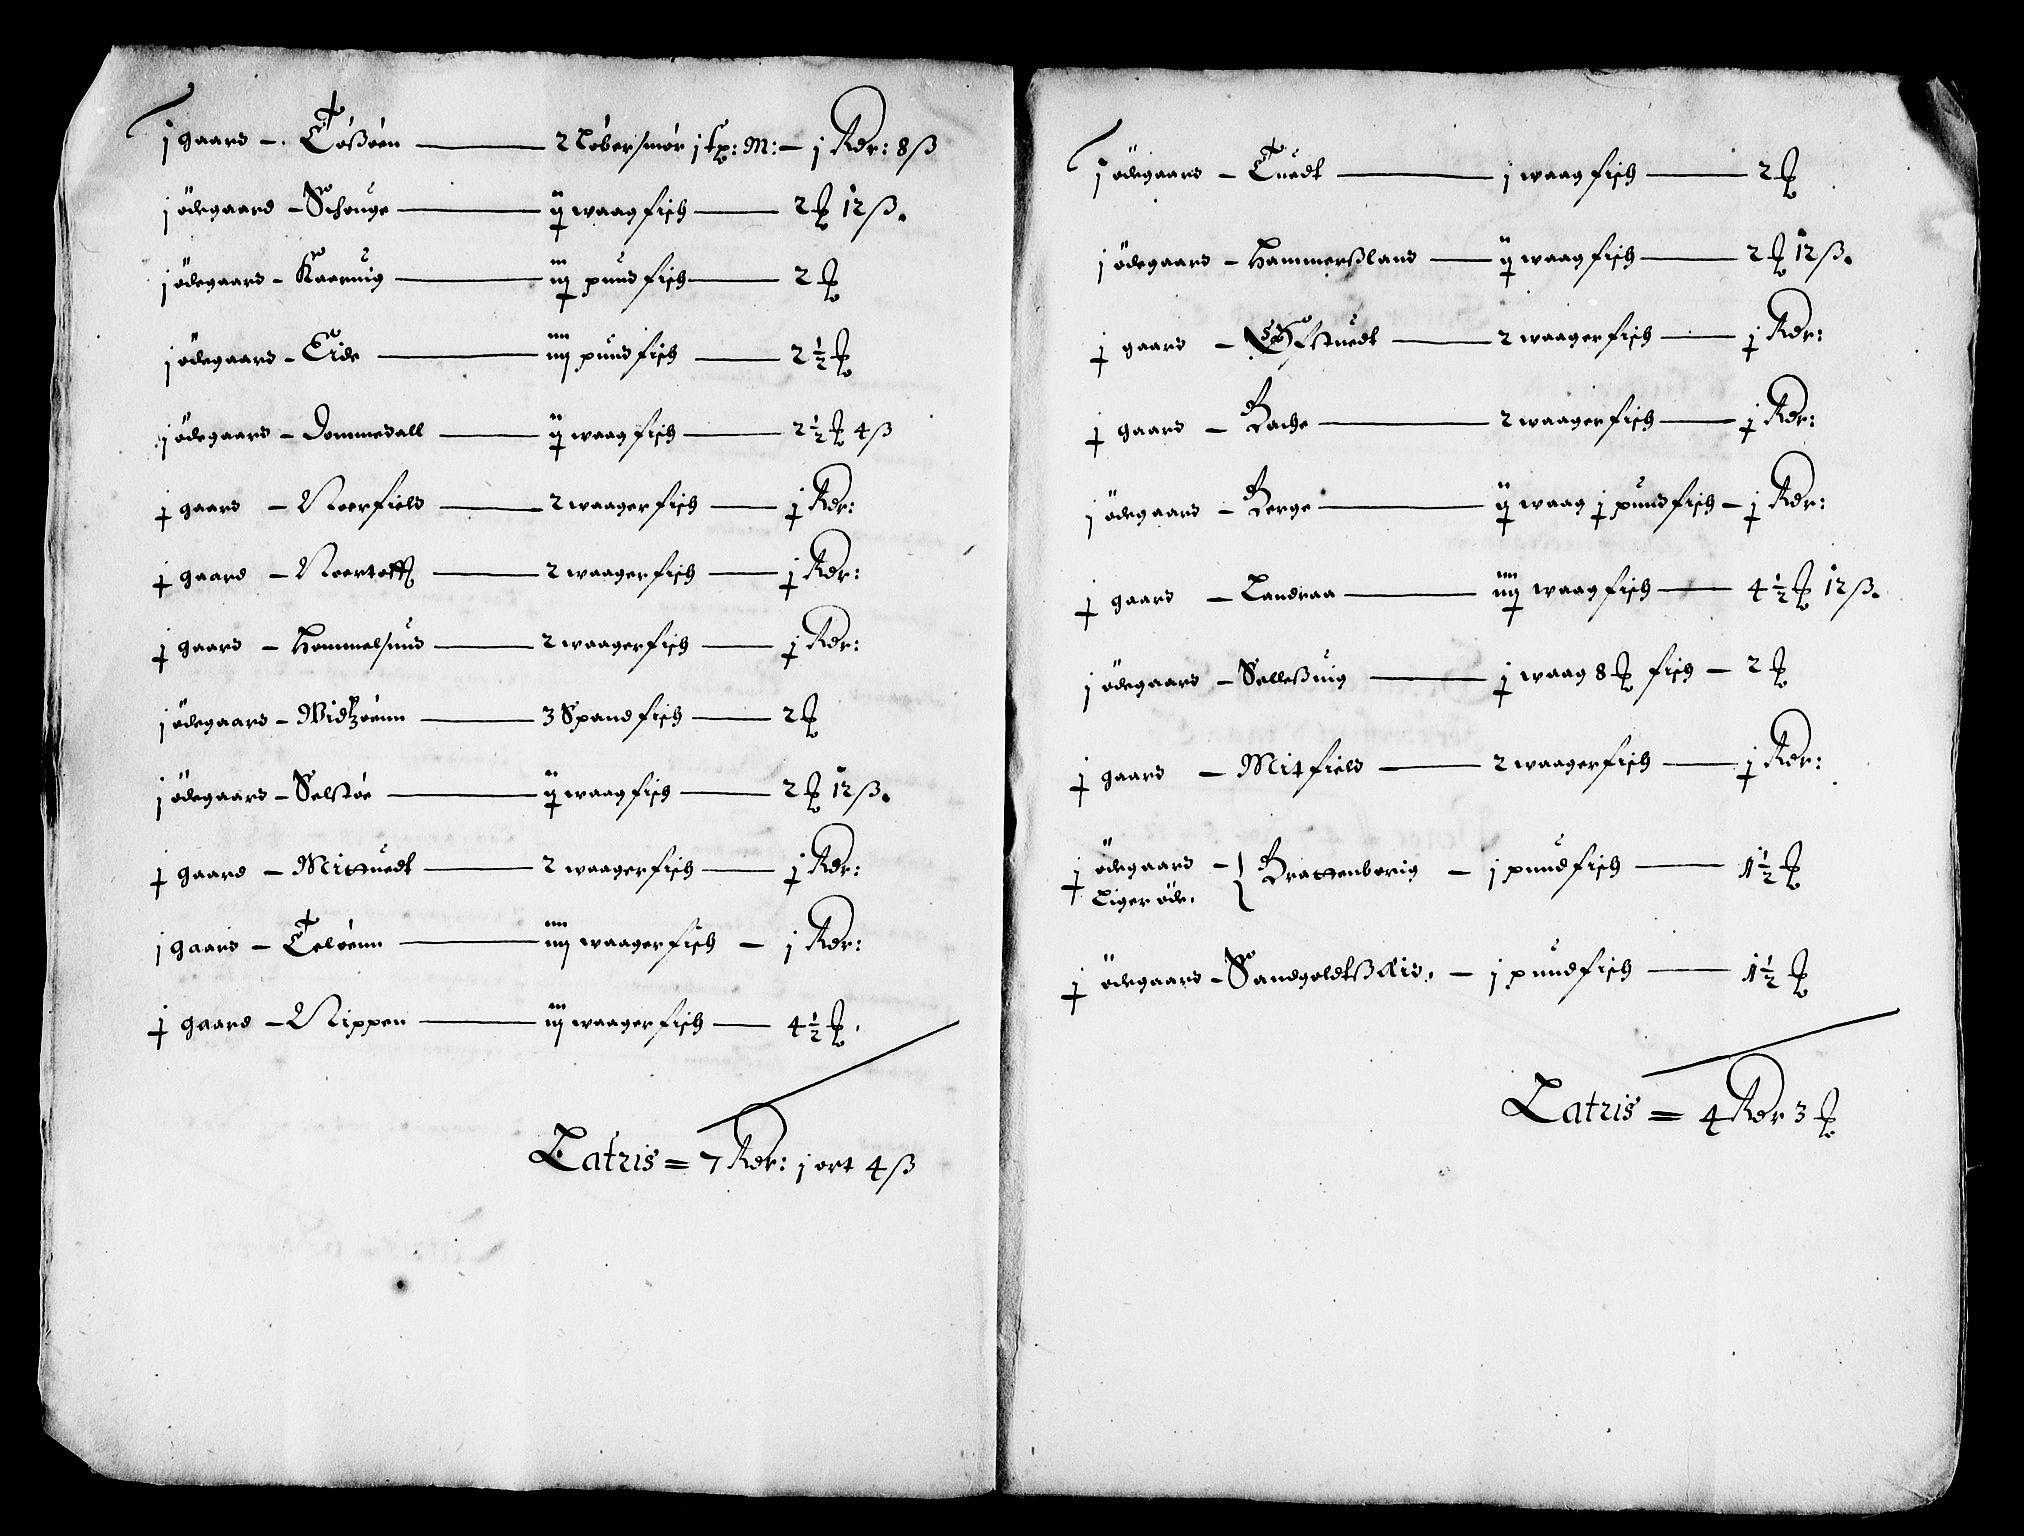 j gaard - Tößøen — 2 Løber smør j sp: M: — j Rdr: 8 ß
j ödegaard - Schouge — ij waag fisch — 2 ℔ 12 ß.
j ödegaard - Kaaruig — iij pund fisch — 2 ℔
j ödegaard - Eide — iiij pund fisch — 2½ ℔
j ödegaard - Dommedall — ij waag fisch — 2½ ℔ 4 ß
j gaard - Noerfield — 2 waager fisch — j Rdr:
j gaard - Noertoft — 2 waager fisch — j Rdr:
j gaard - Hommelsund — 2 waager fisch — j Rdr:
j ödegaard - Widtzøenn — 3 Spand fisch — 2 ℔
j ödegaard - Selstøe — ij waag fisch — 2 ℔ 12 ß.
j gaard - Mittuedt — 2 waager fisch — j Rdr:
j gaard - Teløenn — iiij waager fisch — j Rdr:
j gaard - Nippen — iij waager fisch — 4½ ℔.
Latris = 7 Rdr: j ort 4 ß
j ödegaard - Tuedt — j waag fisch — 2 ℔
j ödegaard - Hammerßland — ij waag fisch — 2 ℔ 12 ß.
j gaard - Øfstuedt — 2 waager fisch — j Rdr:
j gaard - Bache — 2 waager fisch — j Rdr:
j ödegaard - Berge — ij waag j pund fisch — j Rdr:
j gaard - Landraa — iiij waag fisch — 4½ ℔ 12 ß.
j ödegaard - Selleßuig — j waag 8 ℔ fisch — 2 ℔
j gaard - Mitfield — 2 waager fisch — j Rdr:
j ödegaard - } Brattenborig — j pund fisch — 1½ ℔
Liger øde.
j ödegaard - Sandgoldtß Eid. — j pund fisch — 1½ ℔
Latris = 4 Rdr 3 ℔